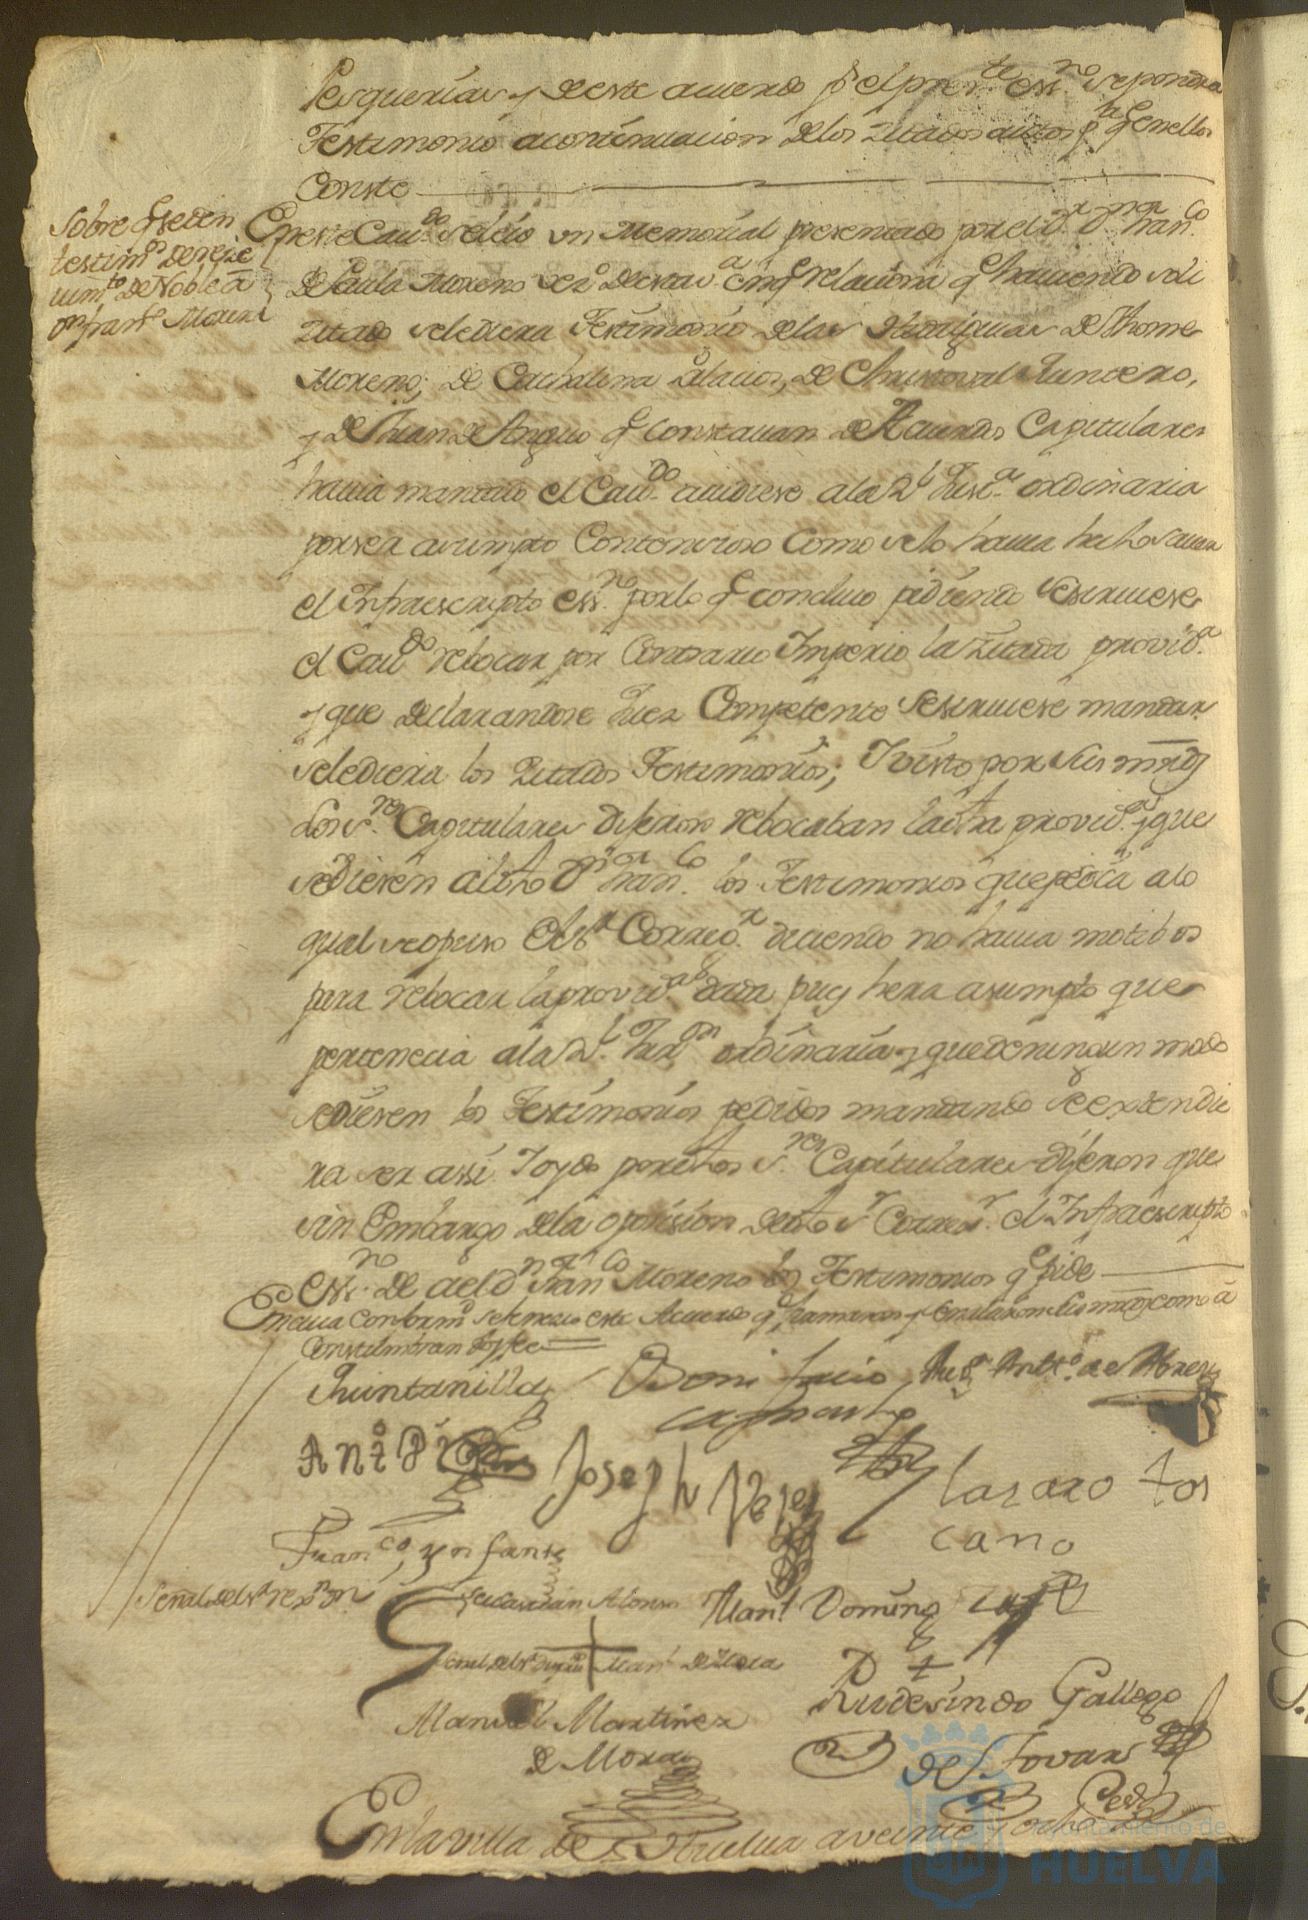 Pesquerias y de este acuerdo p.r el pres.te ess.no se pondra
Testimonio acontinuacion de los Zitados autos p.a q.e en ellos
Conste
Sobre q.e se den
testim.os de reciv
uim.to de Nobles a
D.n Fran.co Moreno
En este Cau.do se leio vn Memorial presentado por el D.r D.n Fran.co
de Paula Moreno vez.o de esta v.a en q.e relaciona q.e hauiendo soli
zitado se le diera Testimonio de las Hidalguias de Thome
Moreno, de Cathalina Palacios, de Christoval Quintero,
y de Juan de Angulo q.e constauan de Acuerdos Capitulares
hauia mandado el Cau.do acudiese a la R.l Just.a ordinaria
por ser asumpto Contencioso como se lo hauia hecho sauer
el Infraescripto ess.no por lo q.e concluio pidiendo se siruiese
el Cau.do rebocar por Contrario Imperio la Zitada provid.a
y que declarandose Juez Competente se siruiese mandar
se le diera los Zitados Testimonios; Y visto por sus mrds
Los S.res Capitulares dijeron rebocaban la dha provid.a y que
se diesen al dho D.n Fran.co los Testimonios que pedia a lo
qual se opuso el S.r Correg.r diciendo no hauia motibos
para rebocar la provid.a dada pues hera asumpto que
pertenecia a la R.l Jur.on ordinaria y que de ningun modo
se diesen los Testimonios pedidos mandando se extendie
ra ser assi Y oydo por estos S.res Capitulares dijeron que
sin embargo de la oposision de dho S.r Correg.r el Infraescripto
Ess.no de a el D.n Fran.co Moreno los Testimonios q.e pide
En cuia conform.d se fenecio este Acuerdo q.e firmaron y señalaron sus mrds como a
Constumbran doy fee
Quintanilla Bonifacio Aug.n Ant.o de Abreu
Ant.o P
Joseph Velez
Lazaro tos
cano
Fran.co ynfante
Señal del S.r re
Sebastian Alonso Man.l Doming
Señal del S.r Man.l de Mora
Rudesindo Gallego
Manuel Martinez
de Mora
de Tovar
En la villa de Huelua a veinte y ocho
Ayuntamiento de
HUELVA